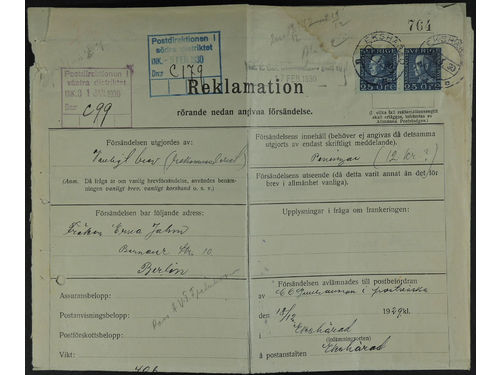 764
Postdirektionen i
södra distriktet
INK. 5 FEB. 1930
Dnr C179
Postdirektionen i
västra distriktet
INK.
Dnr
C99
FEB 1930
EKSHÄRAD
25 ÖRE 25 ÖRE
Reklamation
rörande nedan angivna försändelse.
(I vilka fall reklamationsavgift
skall erläggas, inhämtas ur
Allmänna Poststadgan.)
Försändelsen utgjordes av:
Vanligt brev (rekommenderat)
(Anm. Då fråga är om vanlig brevförsändelse, användes benäm-
ningen vanligt brev, vanligt korsband o. s. v.)
Försändelsens innehåll (behöver ej angivas då detsamma
utgjorts av endast skriftligt meddelande).
Penningar (12 kr?)
Försändelsens utseende (då detta varit annat än det för
brev i allmänhet vanliga).
Försändelsen bar följande adress:
Fröken Erna Jahn
Str. 10
Berlin
Upplysningar i fråga om frankeringen:
Assuransbelopp:
Postanvisningsbelopp:
Postförskottsbelopp:
Vikt:
Försändelsen avlämnades till postbefordran
av
den 18/12 1929 kl.
å Ekshärad
(inlämningsorten)
å postanstalten Ekshärad